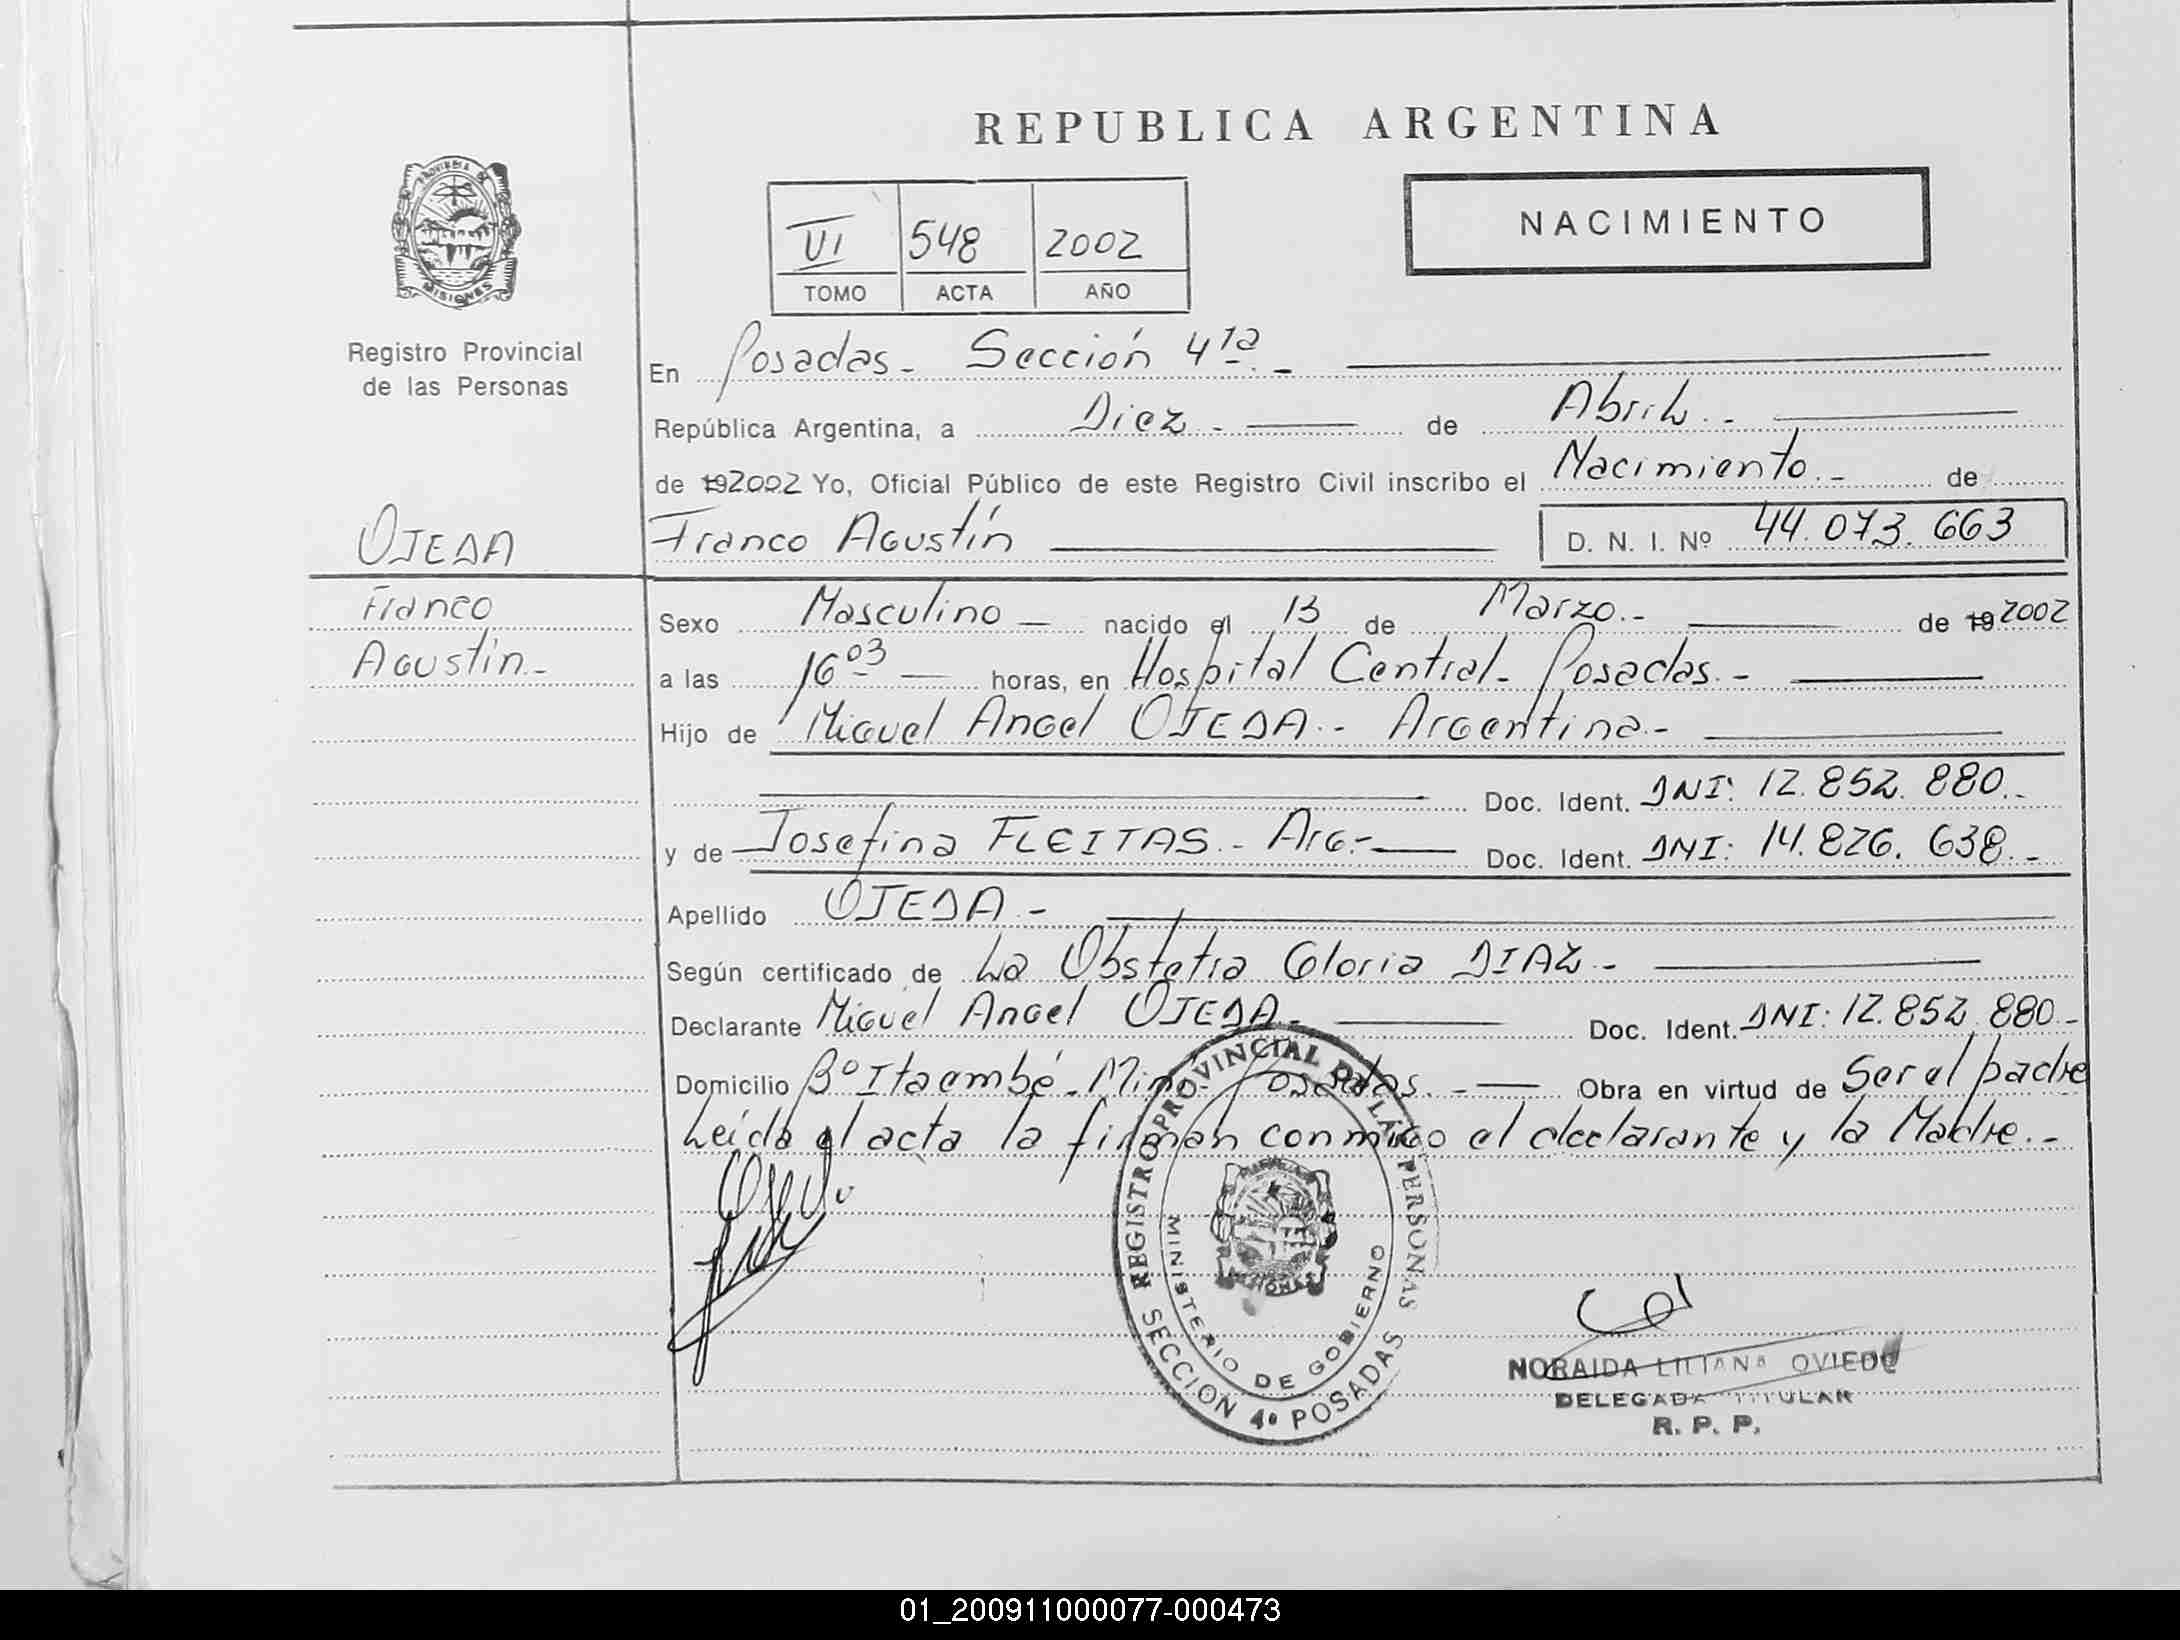 REPUBLICA ARGENTINA
NACIMIENTO
VI 548 2002
TOMO ACTA AÑO
PROVINCIA DE
MISIONES
Registro Provincial
de las Personas
En Posadas.- Sección 4ta.-
República Argentina, a Diez.- de Abril.-
de 192002 Yo, Oficial Público de este Registro Civil inscribo el Nacimiento.- de
OJEDA
Franco Agustín D. N. I. Nº 44.073.663
Franco
Agustín.-
Sexo Masculino — nacido el 13 de Marzo.- de 19 2002
a las 16 03 — horas, en Hospital Central.- Posadas.-
Hijo de Miguel Angel OJEDA.- Argentina.-
Doc. Ident. DNI: 12.852.880.-
y de Josefina FLEITAS.- Arg.- Doc. Ident. DNI: 14.826.638.-
Apellido OJEDA.-
Según certificado de La Obstetra Gloria DIAZ.-
Declarante Miguel Angel OJEDA.- Doc. Ident. DNI: 12.852.880.-
Domicilio Bº Itaembé-Miní- Posadas.- Obra en virtud de Ser el padre
Leída el acta la firman conmigo el declarante y la Madre.-
REGISTRO PROVINCIAL DE LAS PERSONAS
MINISTERIO DE GOBIERNO
SECCION 4ª POSADAS
NORAIDA LILIANA OVIEDO
DELEGADA TITULAR
R. P. P.
01_200911000077-000473